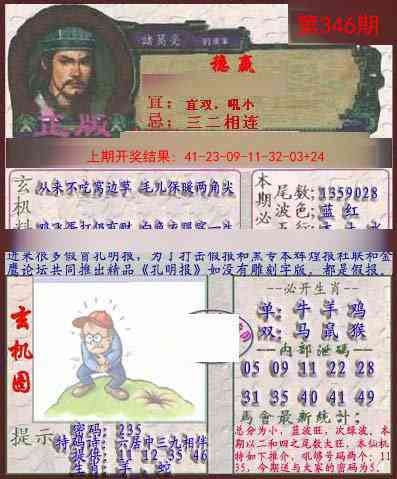 第346期
諸葛亮
穩贏
宜：宜双，吼小
忌：三二相连
正版
上期开奖结果：41-23-09-11-32-03+24
玄机料
从来不吃窝边草 毛儿保暖两角尖
本期必
尾数：1359028
波色：蓝 红
近来很多假冒孔明报，为了打击假报和黑专本辉煌报社联和金
鹰论坛共同推出精品《孔明报》如没有雕刻字版，都是假报。
玄机图
必开生肖
单：牛 羊 鸡
双：马 鼠 猴
内部泄码
05 09 11 22 28
31 35 40 41 49
馬會最新統計：
总分为小，蓝波旺，次绿波，本
期以二和四之尾数大旺，本仙机
特如下推介，吼够号码两个：11
35，今期送与大家的密码为5．
提示
密码：235
特码诗：六居中三九相伴
提供：11 12 35 46
生肖：羊、蛇